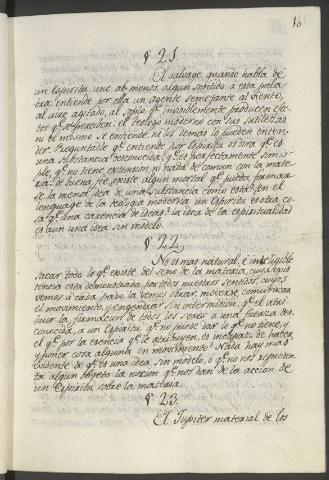 10
§ 21.
El salvage quando habla de
un Espiritu une al menos algun sentido a esta pala
bra: entiende por ella un agente semejante al viento,
al aire agitado, al soplo q.e invisiblemente producen efec-
tos q.e se perciben: el teologo moderno con sus sutilezas
ni él mismo se entiende, ni los demas lo pueden enten-
der. Preguntadle q.e entiende por Espiritu os dirá q.e es
una substancia desconocida, q.e es perfectamente sim-
ple, q.e no tiene extension, ni nada de comun con la mate-
ria: de buena fee, existe algun mortal q.e pueda formarse
la menor idea de una substancia como esta? en el
lenguage de la teologia moderna un Espiritu es otra co-
sa q.e una carencia de ideas: la idea de la espiritualidad
es aun una idea sin modelo.
§ 22.
No es mas natural, é inteligible
sacar todo lo q.e existe del seno de la materia, cuya exis-
tencia está demostrada por todos nuestros sentidos, cuyos
vemos á cada paso, la vemos obrar, moverse, comunicar
el movimiento y engendrar sin intermision, q.e el atri-
buir la formacion de todos los seres a una fuerza des-
conocida, a un Espiritu q.e no puede dar lo q.e no tiene, y
el q.e por la esencia q.e le atribuyen, es incapaz de hacer
y poner cosa alguna en movimiento? Nada hay mas
evidente de q.e es una idea sin modelo, ó q.e no nos represen-
ta algun objeto la nocion q.e nos dan de la accion de
un Espiritu sobre la materia.
§ 23.
El Jupiter material de los